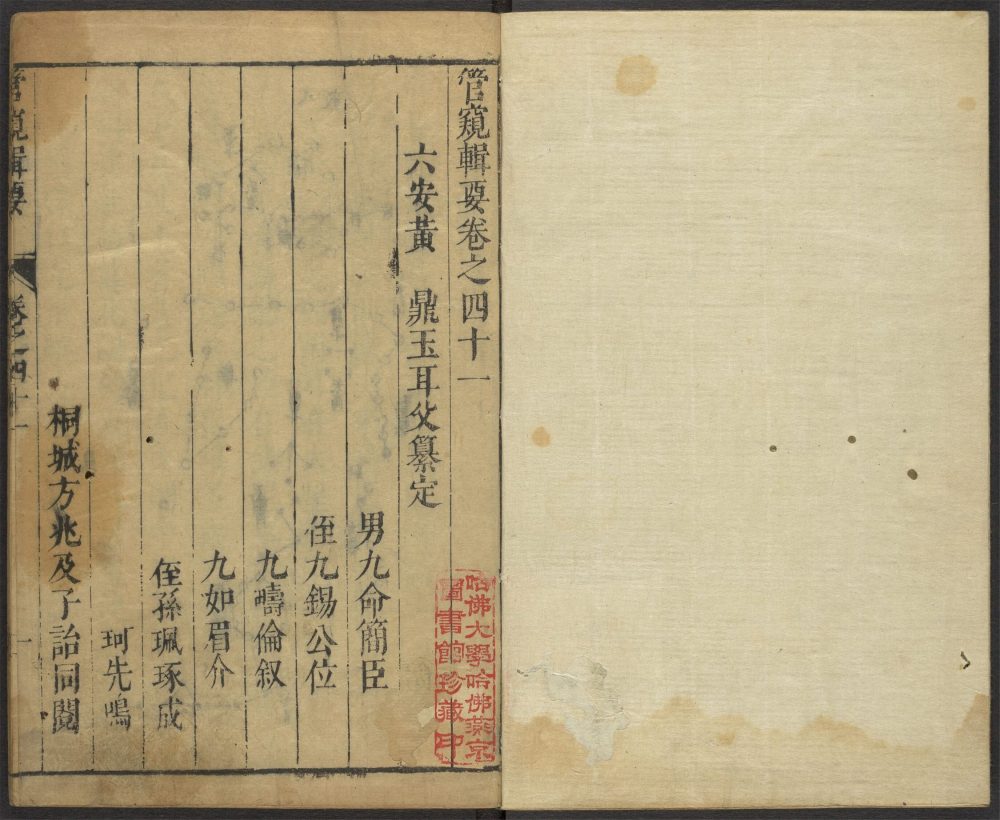 管窺輯要卷之四十一
六安黃 鼎玉耳父纂定
男九命簡臣
侄九錫公位
九疇倫叙
九如眉介
侄孫珮琢成
珂先鳴
桐城方兆及子詒同閱
管窺輯要
卷之四十一
一
哈佛大學哈佛燕京
圖書館珍藏印